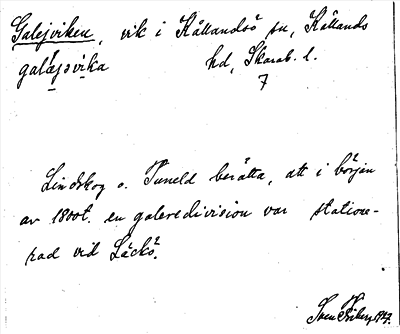 Galejviken, vik i Kållandsö sn, Kållands
galæjsvika hd, Skarab. l.
7
Lindskog o. Tuneld berätta, att i början
av 1800t. en galeredivision var statione-
rad vid Läckö.
Sven Friberg